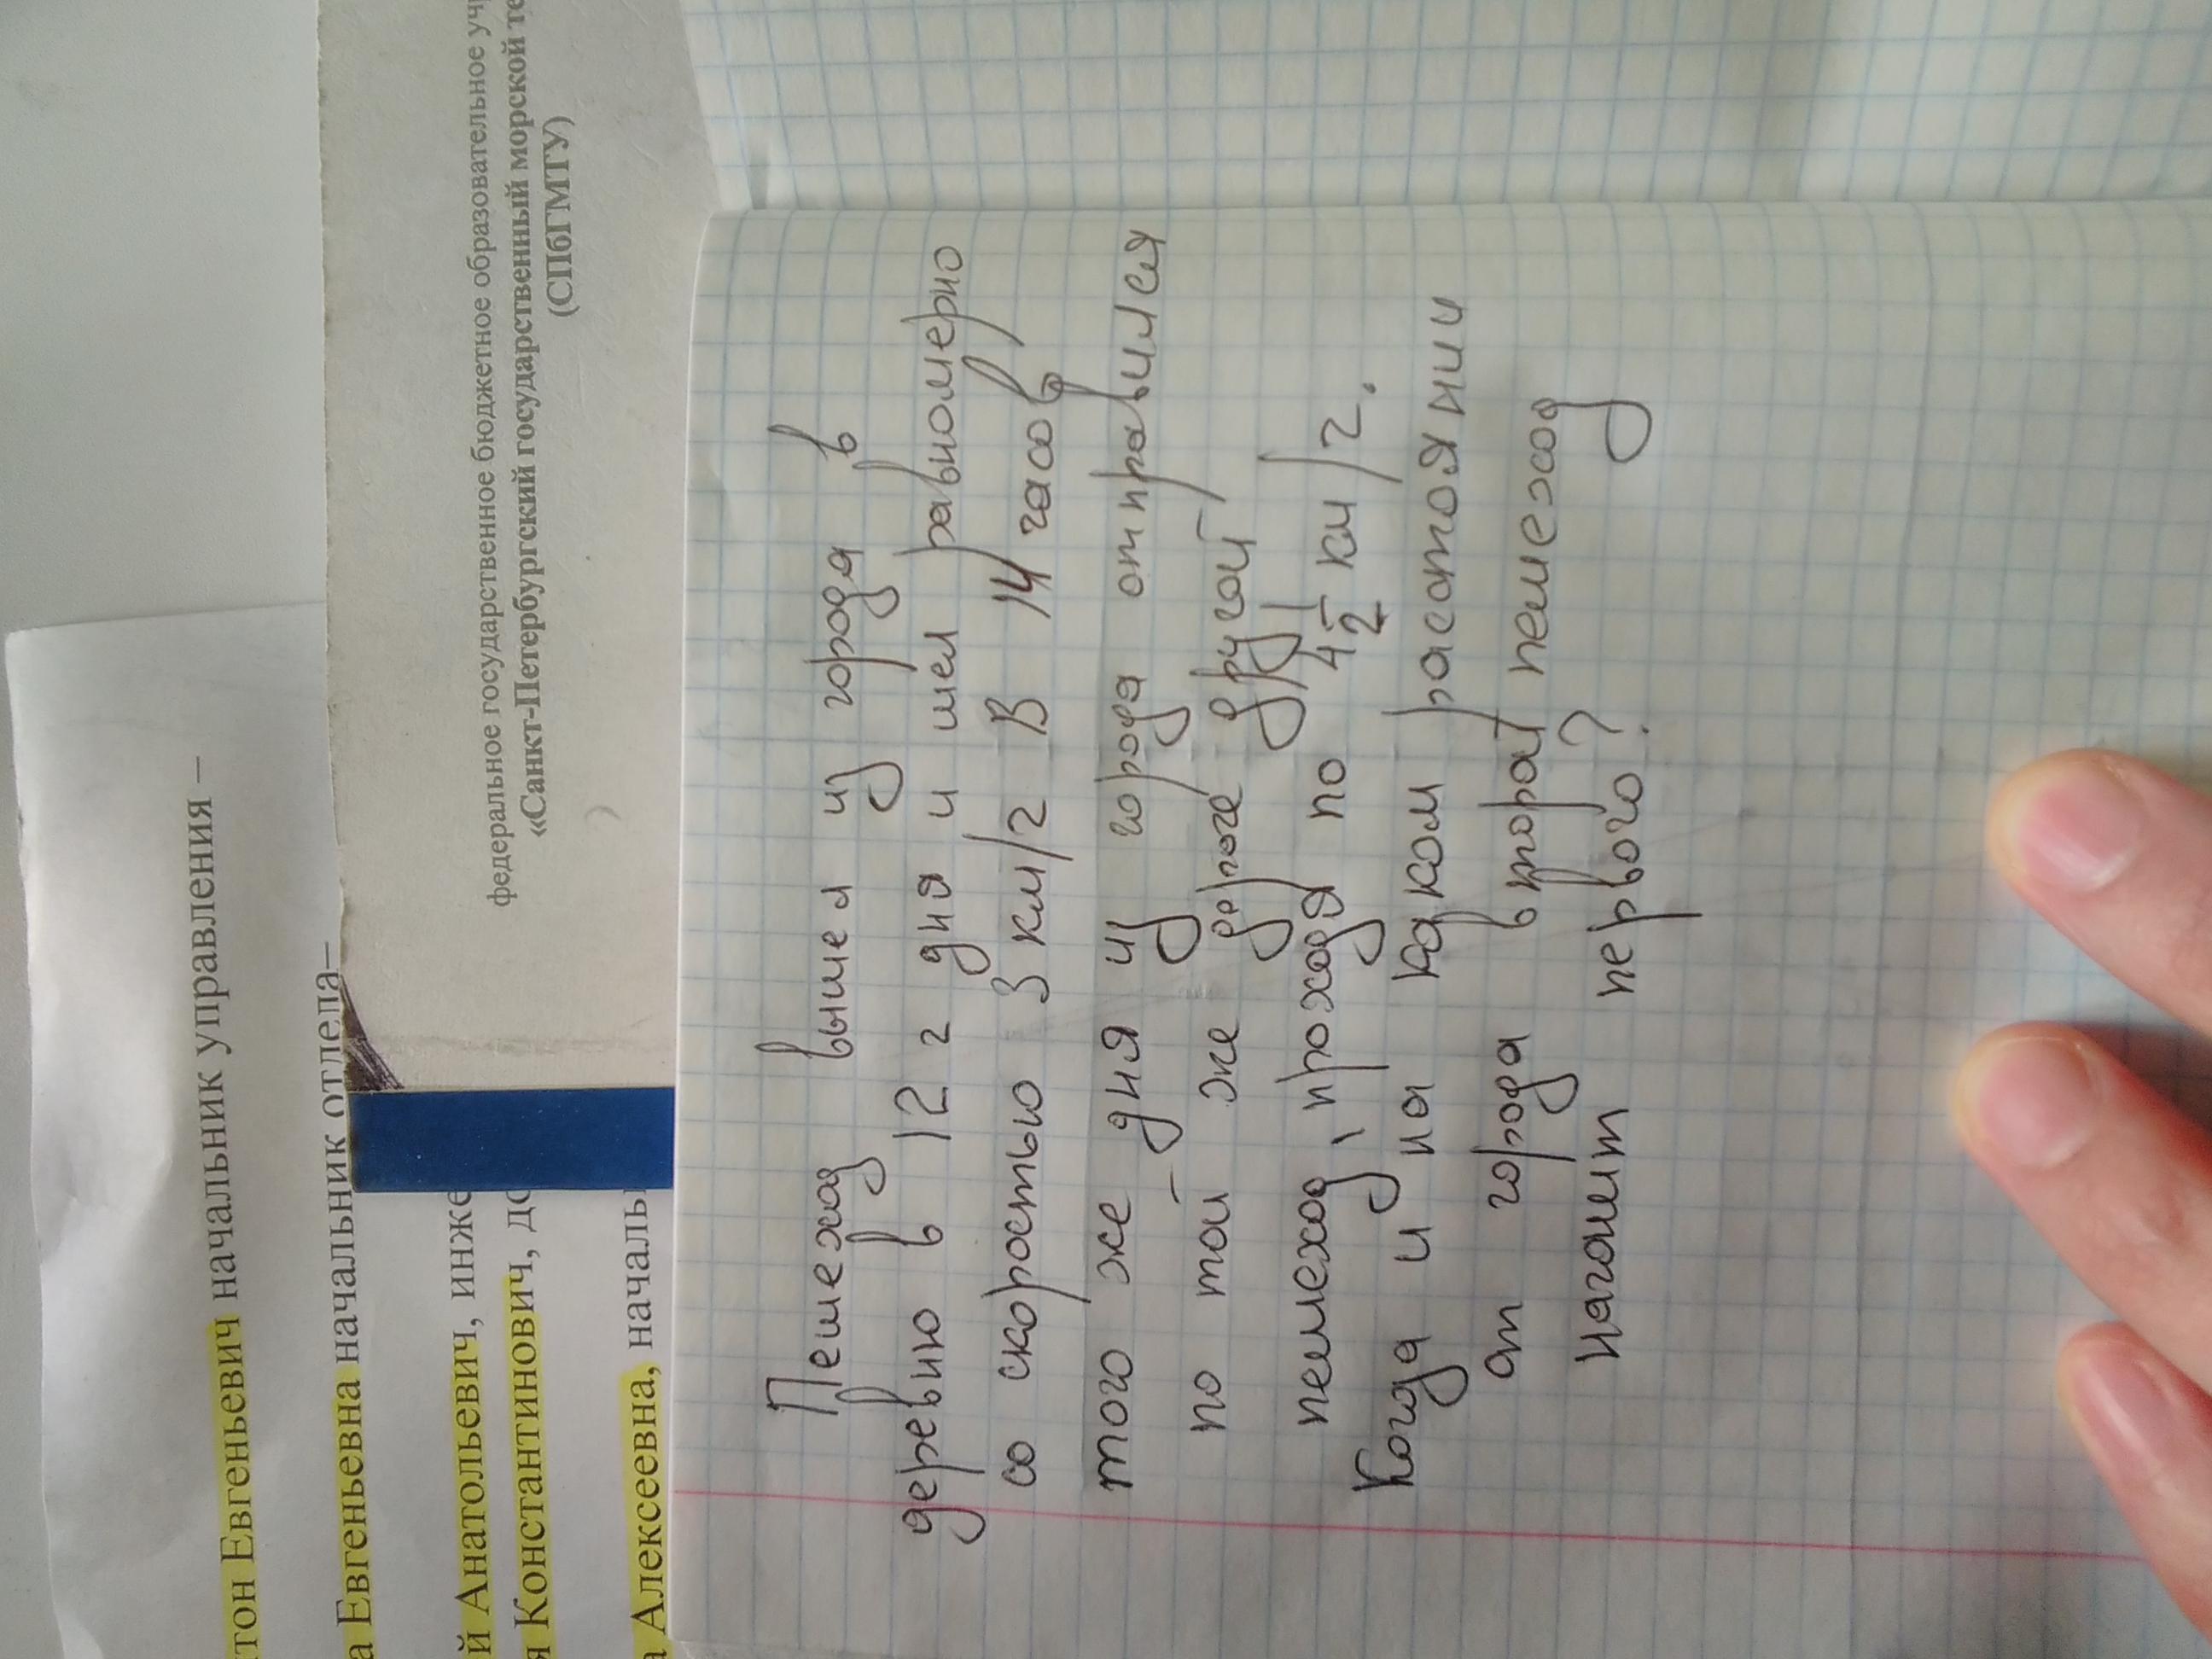 тон Евгеньевич начальник управления –
а Евгеньевна начальник отдела–
й Анатольевич, инже
я Константинович, до
а Алексеевна, началь
федеральное государственное бюджетное образовательное уч
«Санкт-Петербургский государственный морской те
(СПбГМТУ)
Пешеход вышел из города в
деревню в 12 г дня и шел равномерно
со скоростью 3 км/г В 14 часов
того же дня из города отправился
по той же дрпоге другой
пешеход, проходя по 4 1/2 км/г.
Когда и на каком расстоянии
от города второй пешеход
нагонит первого?